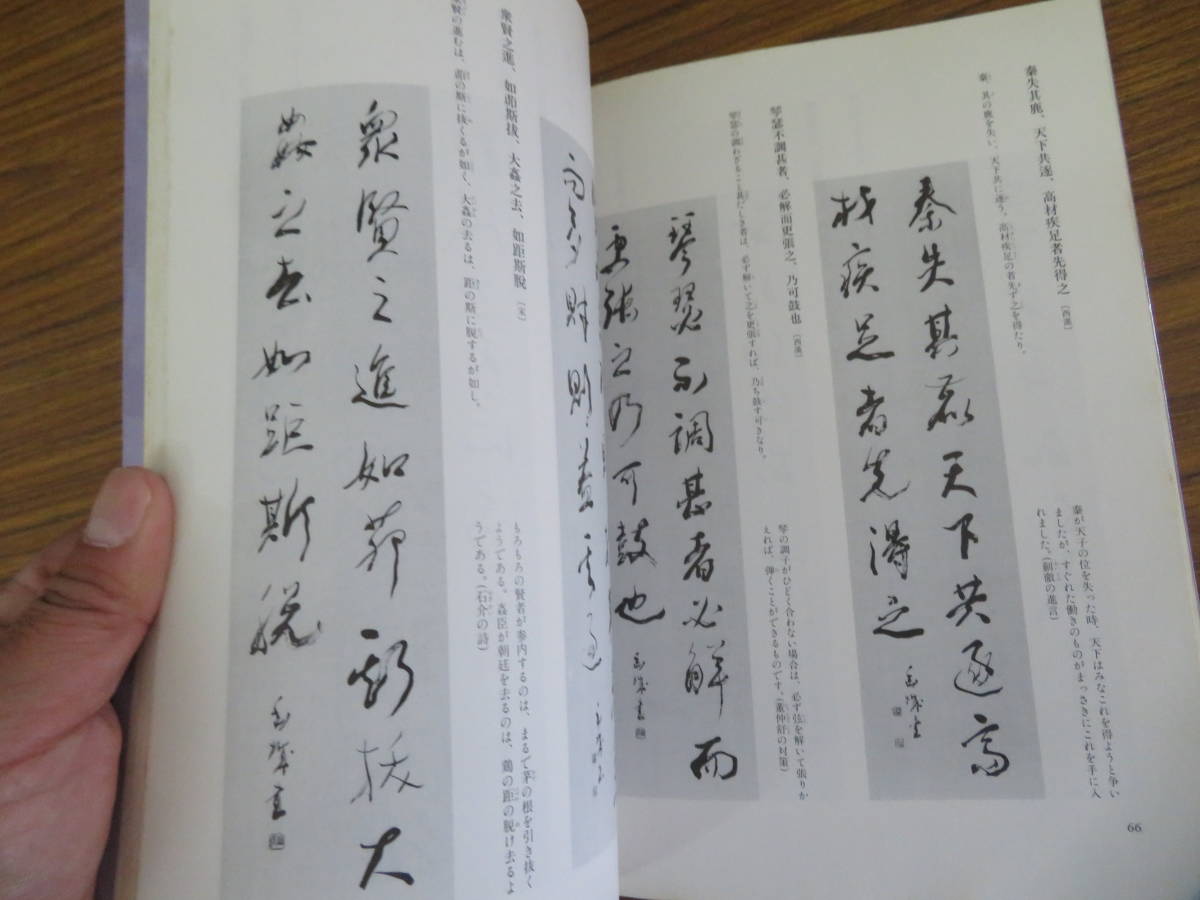 秦失其鹿、天下共逐。高材疾足者先得之
秦其の鹿を失い、天下共に逐う。高材疾足の者先ず之を得たり。
秦が天子の位を失った時、天下はみなこれを得ようと争い
ましたが、すぐれた働きのものがまっさきにこれを手に入
れました。
秦失其鹿天下共逐高
材疾足者先得之
琴瑟不調甚者、必解而更張之、乃可鼓也
琴瑟の調わざること甚だしき者は、必ず解いて之を更張すれば、乃ち鼓す可きなり。
琴の調子がひどく合わない場合は、必ず弦を解いて張りか
えれば、弾くことができるものです。(董仲舒の対策)
琴瑟不調甚者必解而
更張之乃可鼓也
66
衆賢之進、如茆斯拔、大姦之去、如距斯脱
(宋)
衆賢の進むは、茆の斯に抜くるが如く、大姦の去るは、距の斯に脱するが如し。
もろもろの賢者が参内するのは、まるで茅の根を引き抜く
ようである。姦臣が朝廷を去るのは、鶏の距の脱け去るよ
うである。(石介の詩)
衆賢之進如茆斯拔大
姦之去如距斯脱